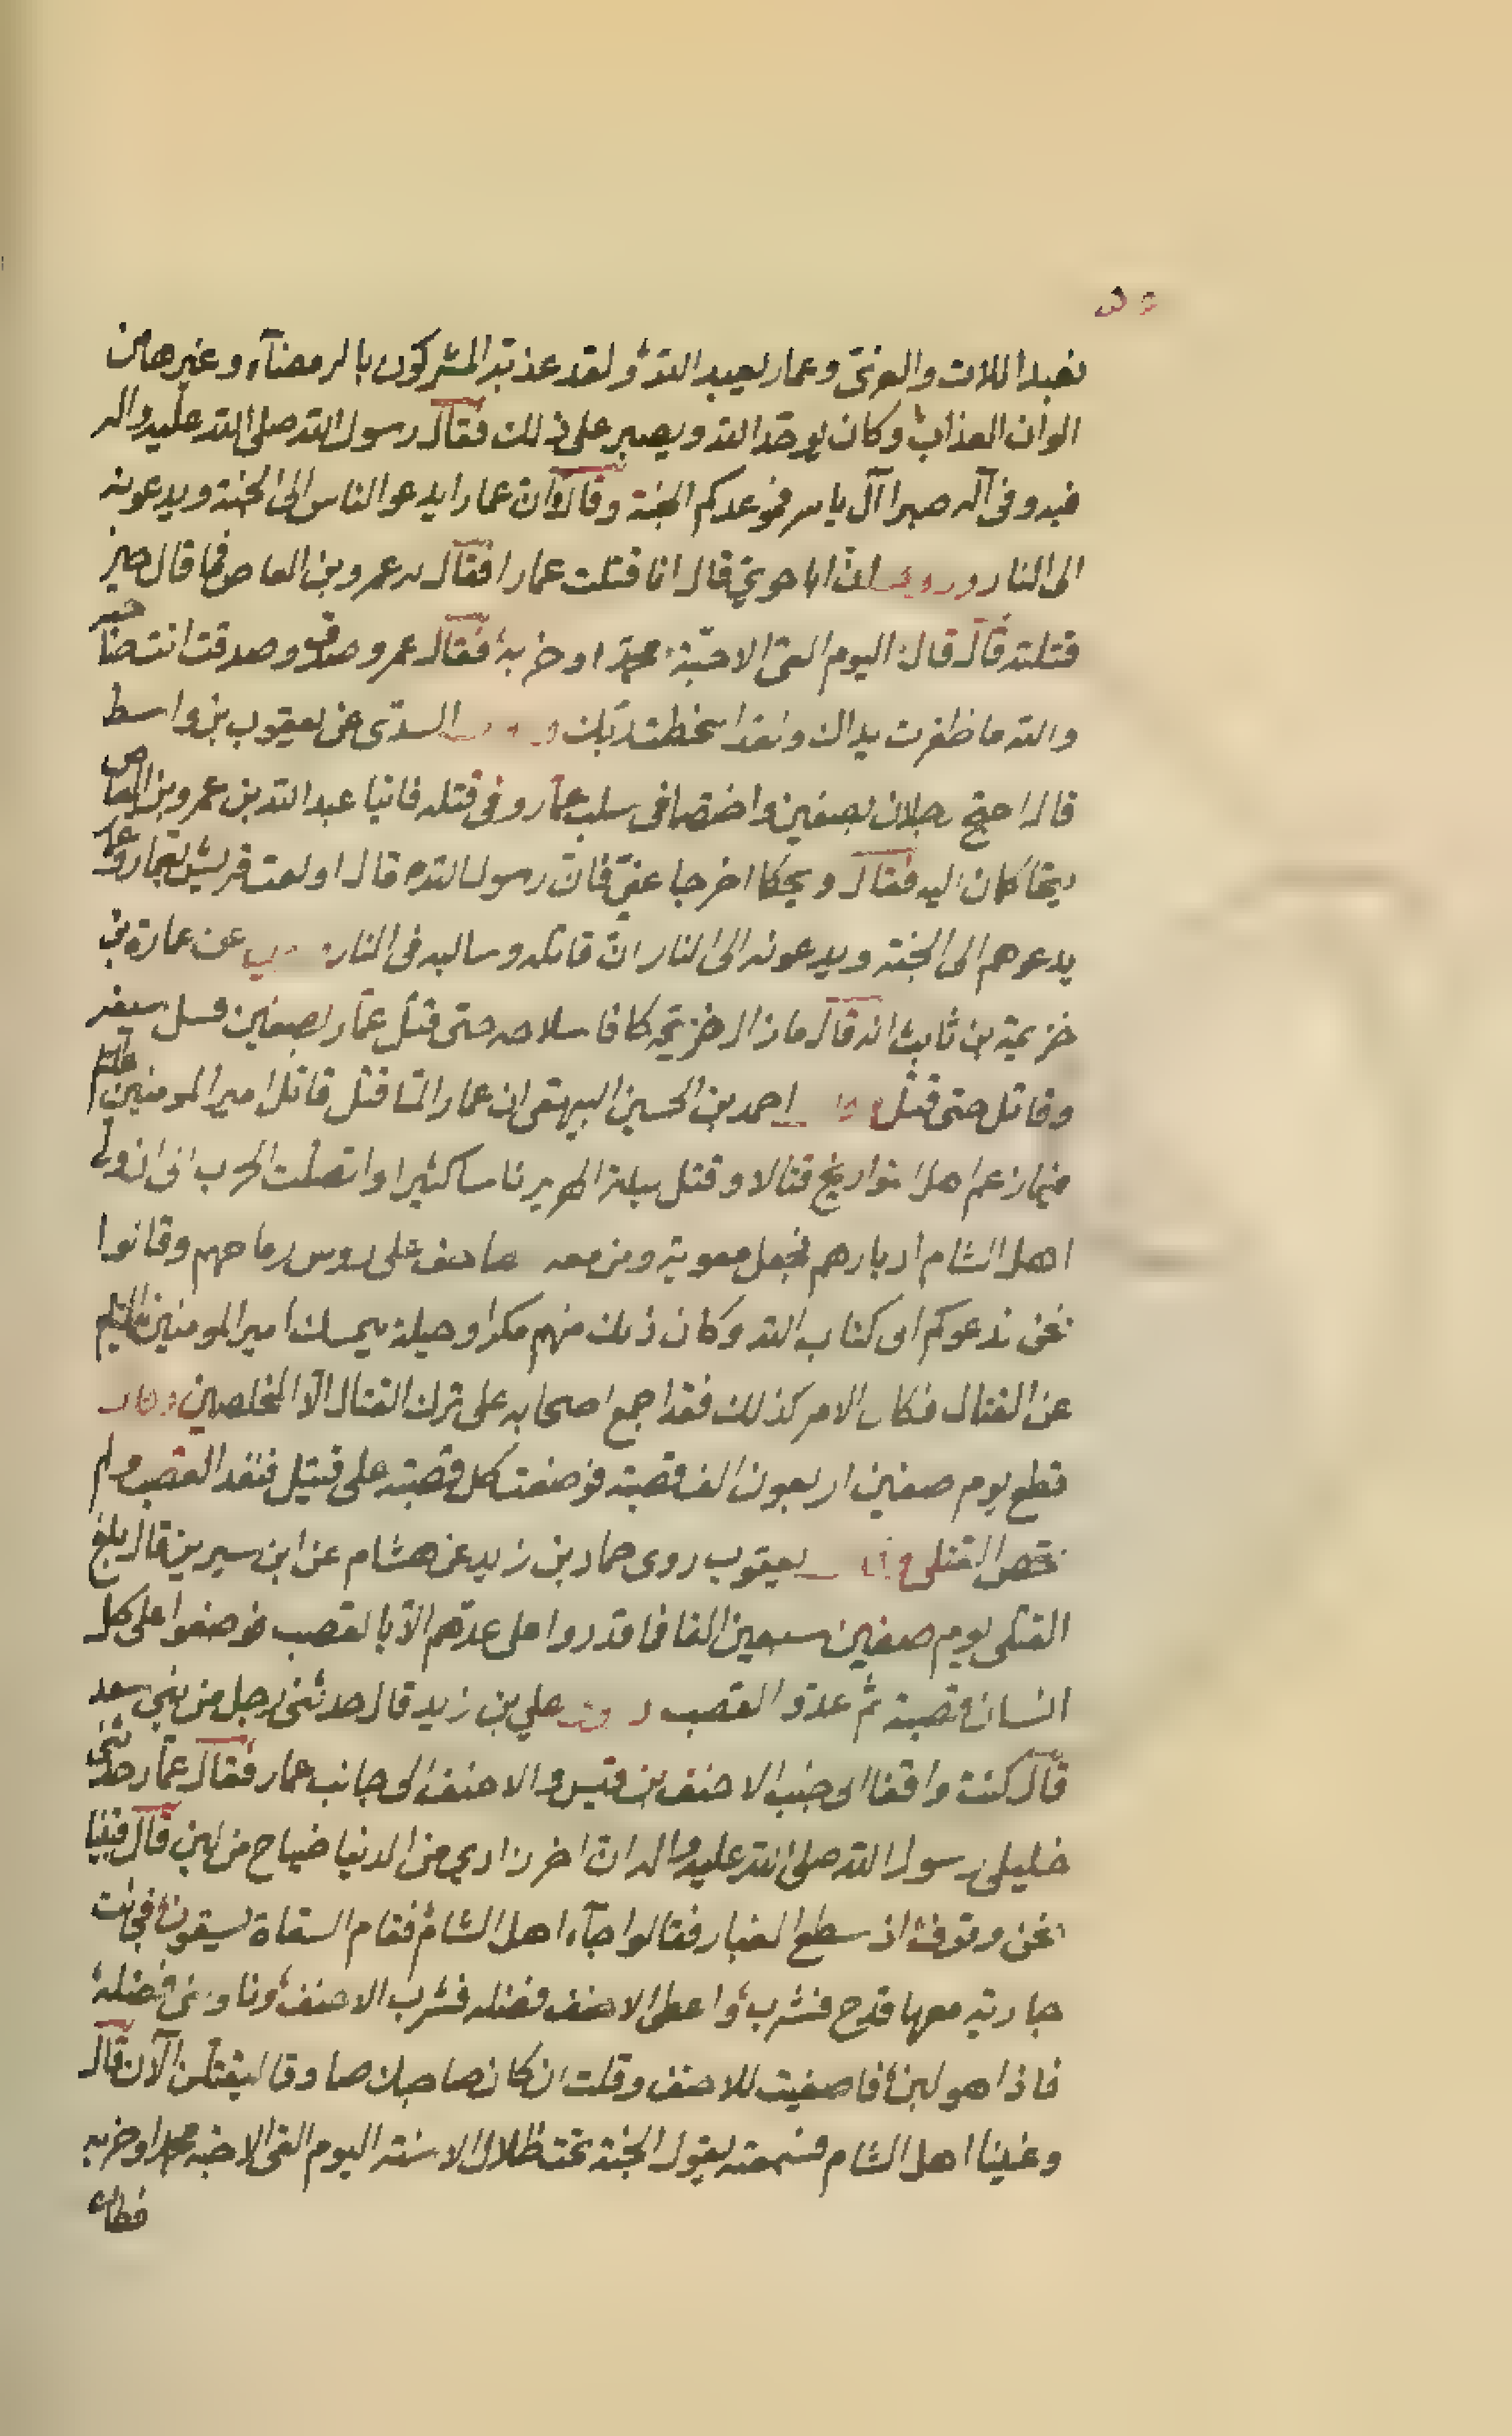 نعبد اللات والعزى وعمار يعبد الله ولقد عذبته المشركون بالرمضآء وغيرها من
الوان العذاب وكان يوحد الله ويصبر على ذلك فقال رسول الله صلى الله عليه واله
فيه وفى آله صبرا آل ياسر فموعدكم الجنة وقال ان عمارا يدعو الناس الى الجنة ويدعونه
الى النار وروى ان ابا حوية قال انا قتلت عمارا فقال له عمرو بن العاص فما قال حين
قتلته قال قال اليوم القى الاحبة محمدا وحزبه فقال عمرو صدقت وصدقت انت صاحبه
والله ما ظفرت يداك ولقد اسخطت ربك السدى عن يعقوب بن واسط
قال احتج رجلان بصفين واختصما فى سلب عمار وفى قتله فاتيا عبد الله بن عمرو بن العاص
يتحاكمان اليه فقال ويحكما اخرجا عنى فان رسول الله قال اولعت قريش بعمار وعمار
يدعوهم الى الجنة ويدعونه الى النار ان قاتله وسالبه فى النار عن عمارة بن
خزيمة بن ثابت انه قال ما زال خزيمة كافا سلاحه حتى قتل عمار بصفين فسل سيفه
وقاتل حتى قتل احمد بن الحسين البيهقى ان عمارا لما قتل قاتل امير المومنين
فيما زعم اهل التواريخ قتالا وقتل ليلة الهرير ناسا كثيرا واتصلت الحرب الى ان ولى
اهل الشام ادبارهم فجعل معوية ومن معه مصاحف على روس رماحهم وقالوا
نحن ندعوكم الى كتاب الله وكان ذلك منهم مكرا وحيلة ليمسك امير المومنين
عن القتال فكان الامر كذلك فقد اجمع اصحابه على ترك القتال الا المخلصين وقال
قطع يوم صفين اربعون الف قصبة فوضعت كل قصبة على قتيل فنفد القصب ولم
نحص القتلى يعقوب روى حماد بن زيد عن هشام عن ابن سيرين قال بلغ
القتلى يوم صفين سبعين الفا فما قدروا على عدهم الا بالقصب فوضعوا على كل
انسان قصبة ثم عدوا القصب على بن زيد قال حدثنى رجل من بنى سعد
قال كنت واقفا الى جنب الاحنف بن قيس والاحنف الى جانب عمار فقال عمار حدثنى
خليلى رسول الله صلى الله عليه واله ان اخر زادى من الدنيا ضياح من لبن قال فبينا
نحن وقوف اذ سطع الغبار فقالوا جآء اهل الشام فقام السقاة يسقون فجائت
جارية معها قدح فشرب واعطى الاحنف فضله فشرب الاحنف وناولنى فضله
فاذا هو لبن فاصغيت للاحنف وقلت ان كان صاحبك صادقا ليقتلن الآن قال
وغشينا اهل الشام فسمعته يقول الجنة تحت ظلال الاسنة اليوم القى الاحبه محمدا وحزبه